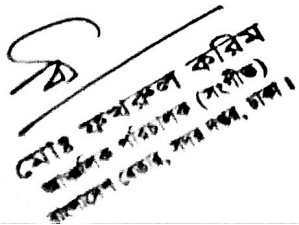 মোঃ ফখরুল করিম
আঞ্চলিক পরিচালক (সংগীত)
বাংলাদেশ বেতার, সদর দপ্তর, ঢাকা।